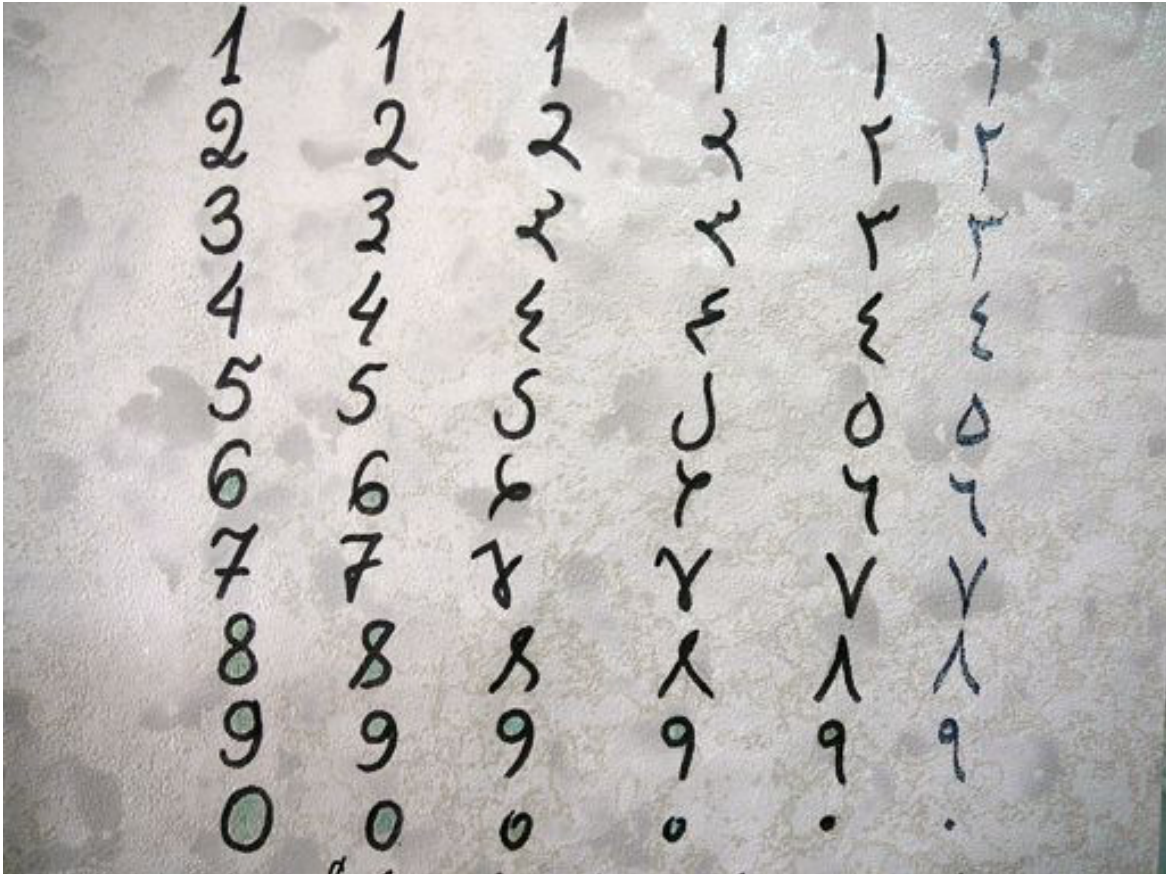 1 1 1 1 ١ ١
2 2 2 ٢ ٢
3 3 ٣ ٣
4 4 ٤ ٤ ٤
5 5 5 ٥ ٥
6 6 ٦ ٦
7 7 ٧ ٧ ٧
8 8 ٨ ٨ ٨
9 9 9 9 ٩ ٩
0 0 0 0 ٠ ٠